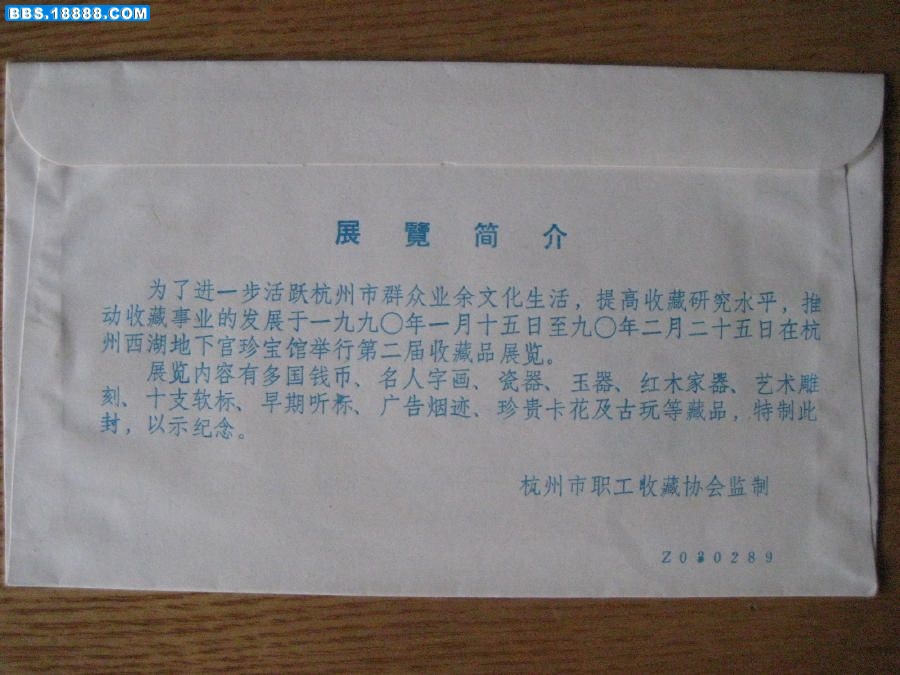 BBS.18888.COM
展覽简介
为了进一步活跃杭州市群众业余文化生活，提高收藏研究水平，推
动收藏事业的发展于一九九〇年一月十五日至九〇年二月二十五日在杭
州西湖地下宫珍宝馆举行第二届收藏品展览。
展览内容有多国钱币、名人字画、瓷器、玉器、红木家器、艺术雕
刻、十支软标、早期听标、广告烟迹、珍贵卡花及古玩等藏品，特制此
封，以示纪念。
杭州市职工收藏协会监制
Z030289